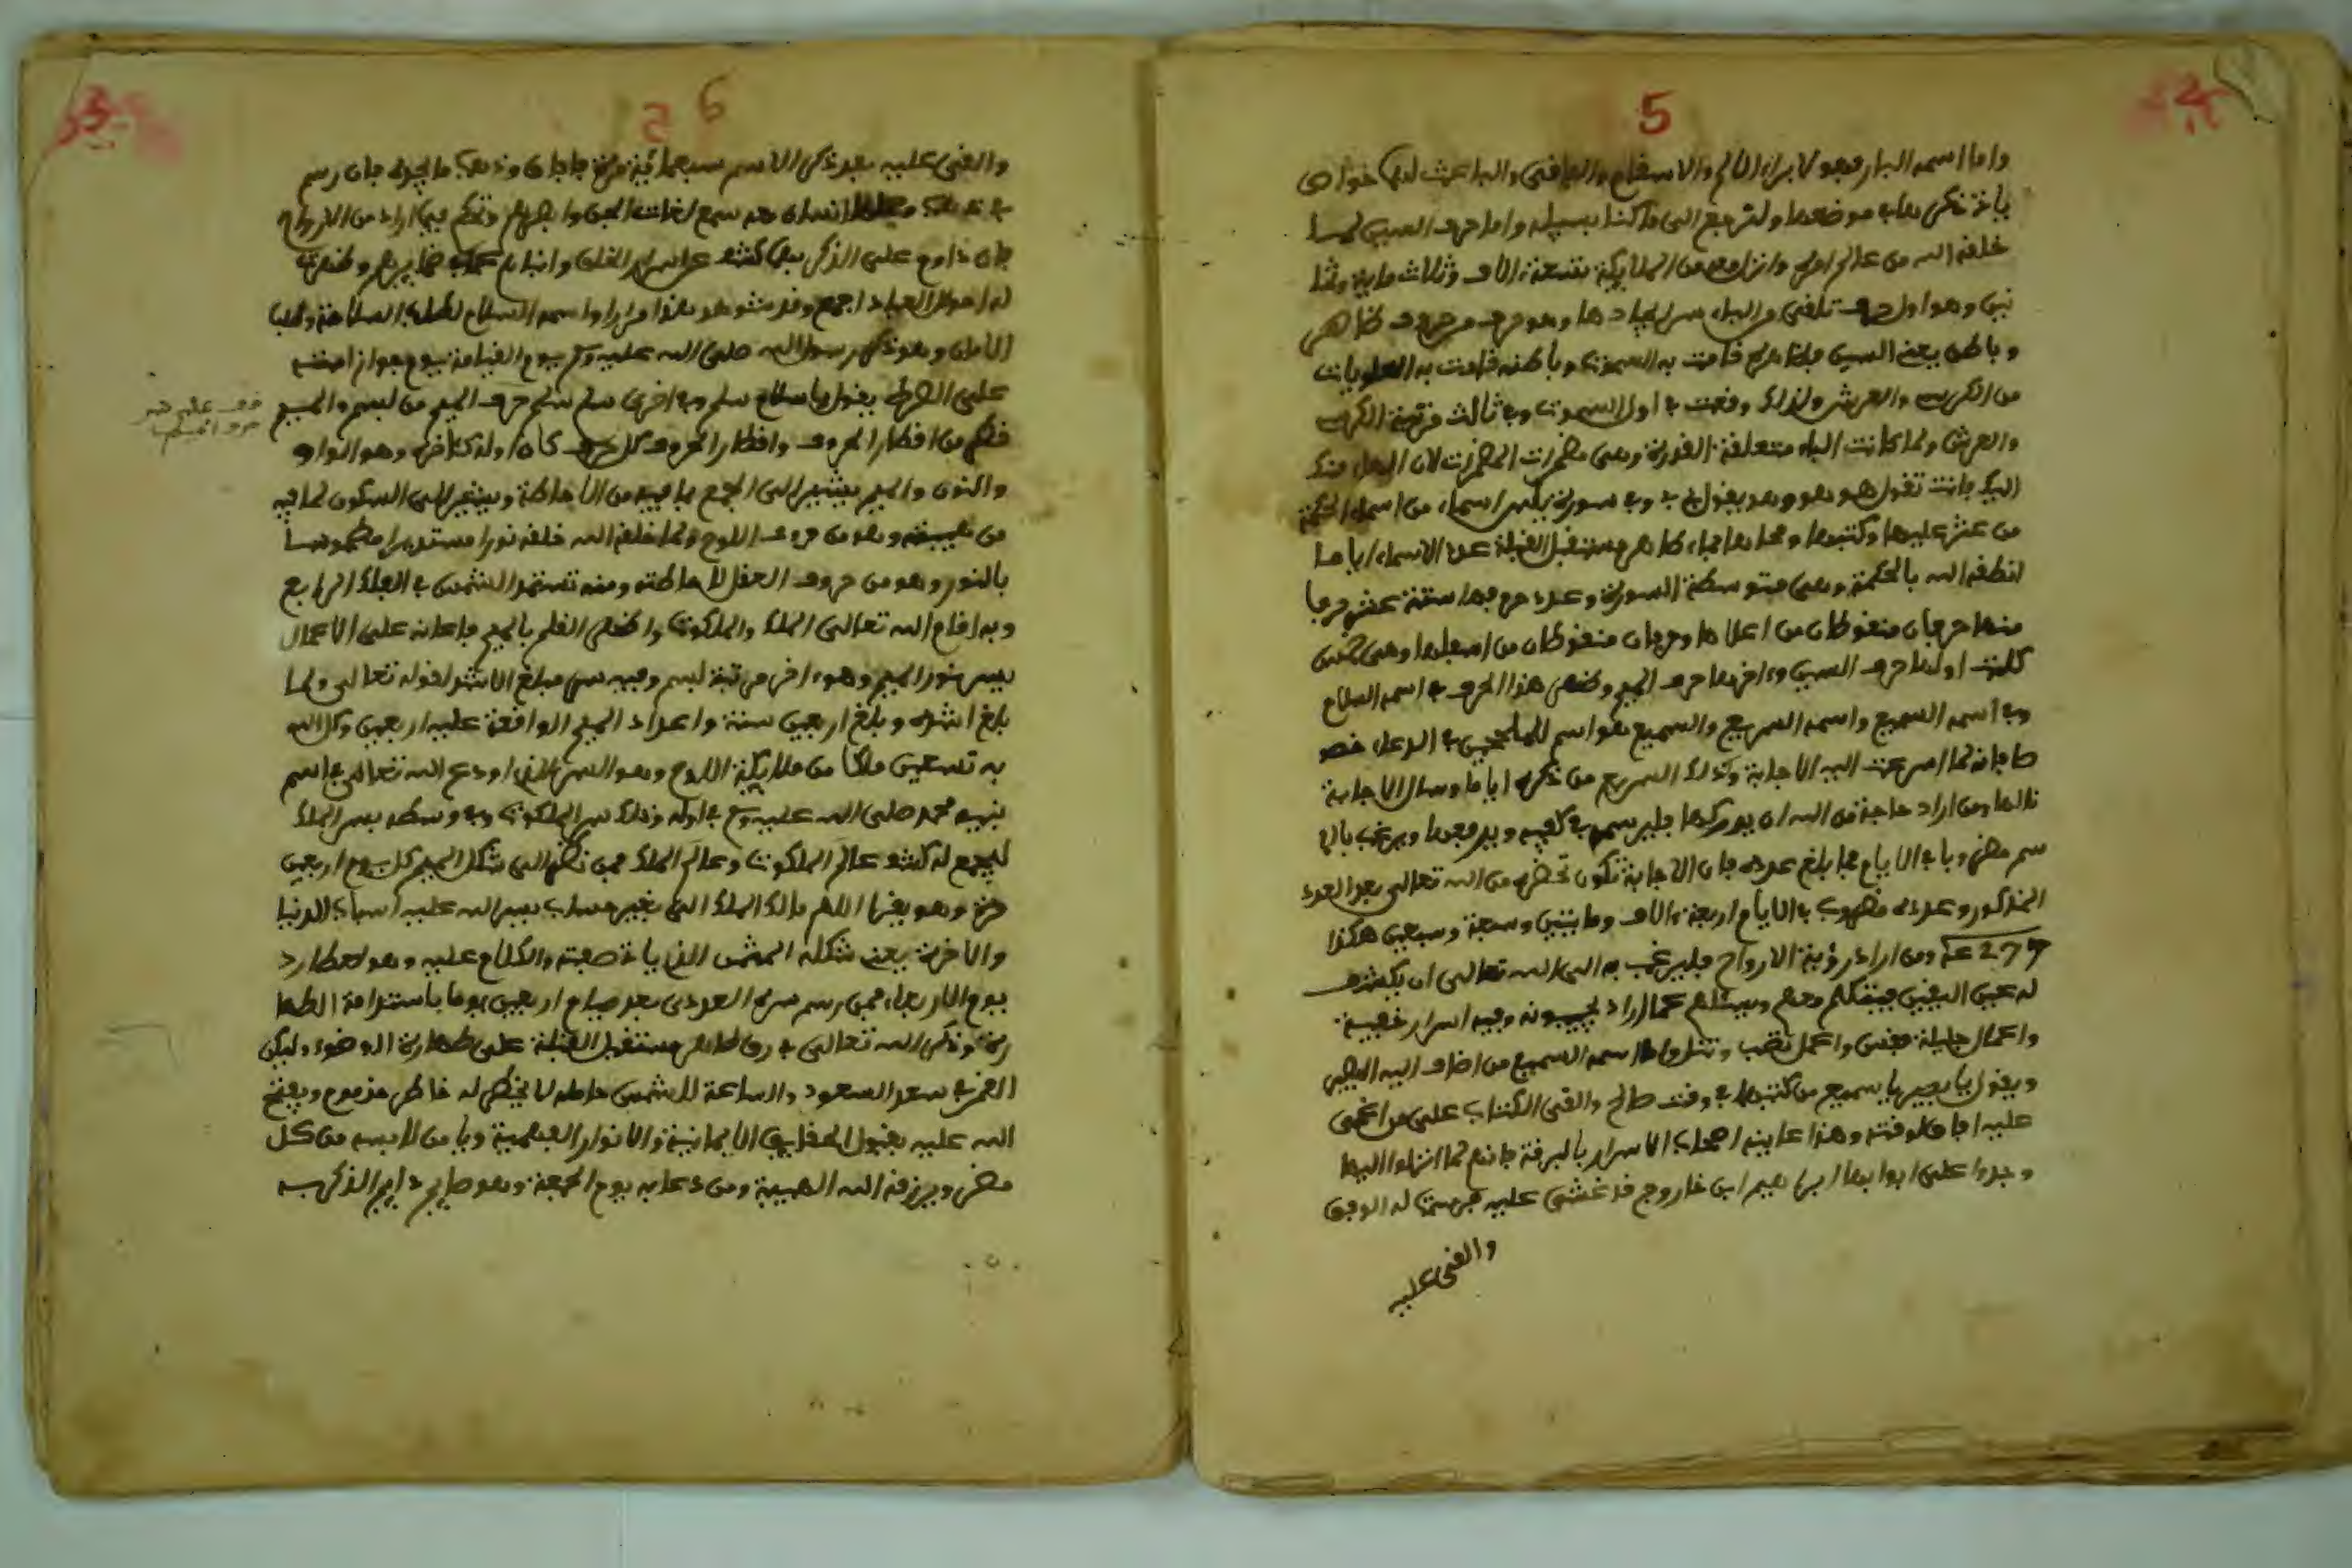 5
واما اسمه البار فهو لابراء الالم والاسقام والباعث لها خواص
ياتي ذكرها في موضعها ولنرجع الى ما كنا بسبيله واما حرف السين لما
خلقه الله من عالم امره وانزل معه من الملايكة تسعة الاف وثلاث ماية وثما
نين وهو اول حرف تلقى من الباء سر ايجادها وهو حرف من حروف ظاهر
وباطن يعني السين فظاهره قامت به السموات وباطنه قامت به العلويات
من الكرسي والعرش ولذلك وقعت في اول السموات وفي ثالث مرتبة الكرسي
والعرش ولما كانت الباء متعلقة القدرة وهي مضمرات المضمرات لان
اليك فانت تقول هو هو وهو يقول في وفي سورة يس اسماء من اسماء الحكمة
من عثر عليها وكتبها ومحاها بماء طاهر مستقبل القبلة عدد الاسماء اياما
انطقه الله بالحكمة وهي متوسطة السورة وعدد حروفها ستة عشر حرفا
منها حرفان منقوطان من اعلاها وحرفان منقوطان من اسفلها وهي خمس
كلمات اولها حرف السين وءاخرها حرف الميم وظهر هذا الحرف في اسمه السلام
وفي اسمه السميع واسمه السريع والسميع هو اسم للملحين في الدعاء خصو
صا فانه لما اسرعت اليه الاجابة وكذلك السريع من ذكره اياما وسال الاجابة
نالها ومن اراد حاجة من الله ان يدركها فليرسم في كفيه ويرفعها ويرغب بالا
سم مضروبا في الايام مما بلغ عدده فان الاجابة تكون تحضره من الله تعالى بعد العدد
المذكور وعدده مضروب في الايام اربعة الاف ومايتين وسبعة وسبعين هكذا
ومن اراد رؤية الارواح فليرغب به الى الله تعالى ان يكشف
له عين اليقين فيتكلم معهم ويسئلهم عما اراد يجيبونه وفيه اسرار خفية
واعمال جليلة فتس واعمل تصب وتنل واما اسمه السميع من اضاف اليه البصير
ويقول يا بصير يا سميع من كتبها في وقت صالح والقى الكتاب على من اغمي
عليه افاق لوقته وهذا عاينه اصحاب الاسرار بالبرقة فانهم لما انتهوا اليها
وجدوا على ابوابها ابراهيم ابن فاروج قد غشي عليه فرسمت له الوفق
والقى عليه
6
والقى عليه بعد ذكر الاسم سبعماية مرة فافاق وذهب ما يجده فان رسم
سمع لغات الجن وابصرهم وتكلم فيما اراد من الارواح
فان داوم على الذكر بها كشف عن اسرار الخلق وانباهم عما في ضمايرهم وظهرت
له احوال العباد اجمع وقد شوهد هذا مرارا واسمه السلام لطلب السلامة وطلب
الامان وهو ذكر رسول الله صلى الله عليه وسلم يوم القيامة يوم جواز امته
على الصراط يقول يا سلام سلم وفي اخرى سلم سلم حرف الميم من بسم والميم
قطر من اقطار الحروف واقطار الحروف كل حرف كان اوله كئاخره وهو الواو
والنون والميم يشير الى الجمع بما فيه من الاحاطة ويشير الى السكون لما فيه
من غيبته وهو من حروف اللوح ولما خلقه الله خلقه نورا مستديرا مطموسا
بالنور وهو من حروف العقل للاحاطة ومنه تستمد الشمس في الفلك الرابع
وبه اقام الله تعالى الملك والملكوت واظهر القلم بالميم فاعانه على الاعمال
بسر نور الميم وهو ءاخر مرتبة بسم وفيه سر مبلغ الاشد لقوله تعالى ولما
بلغ اشده وبلغ اربعين سنة واعداد الميم الواقعة عليه اربعين وكل الله
به تسعين ملكا من ملايكة اللوح وهو السر الذي اودع الله تعالى في اسم
نبيه محمد صلى الله عليه وسلم في اوله وذلك سر الملكوت وفي وسطه سر الملك
ليجمع له كشف عالم الملكوت وعالم الملك فمن نظر الى شكل الميم كل يوم اربعين
مرة وهو يقرا اللهم مالك الملك الى بغير حساب يسر الله عليه اسباب الدنيا
والاخرة يعني شكله المثمن الذي ياتي صفته والكلام عليه وهو لعطارد
يوم الاربعاء فمن رسم سره العددي بعد صيام اربعين يوما باستدامة الطها
رة وذكر الله تعالى في رق طاهر مستقبل القبلة على طهارة الوضوء وليكن
القمر في سعد السعود والساعة للشمس حامله لا يخطر له خاطر مذموم ويفتح
الله عليه بقبول الحقايق الايمانية والانوار الفهمية ويامن لابسه من كل
مضر ويرزقه الله الهيبة ومن دعا به يوم الجمعة وهو صايم دايم الذكر به